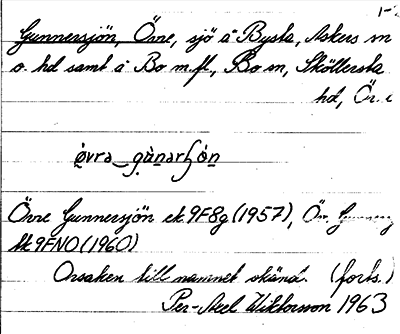 1-2
Gunnersjön, Övre, sjö å Bysta, Askers sn
o. hd samt å Bo m.fl., Bo sn, Sköllersta
hd, Ör.
övrə_gùnərʃön
Övre Gunnersjön ek 9F8g (1957), Ör. Gunners
tk 9FNO (1960)
Orsaken till namnet okänd. (forts.)
Per-Axel Wiktorsson 1963